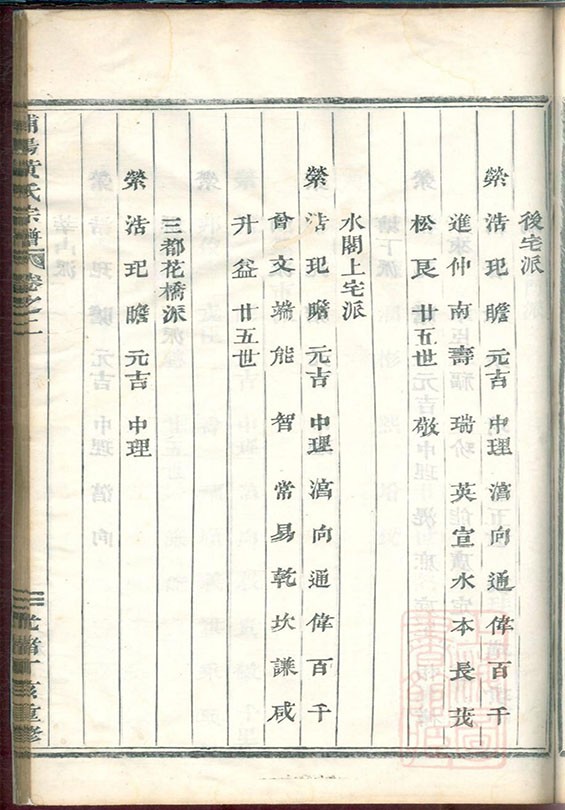 後宅派
縈浩玘瞻元吉中理㵎向通偉百千
進仲南壽瑞英宣水本長茂
松艮廿五世敬
水閣上宅派
縈浩玘瞻元吉中理㵎向通偉百千
曾文端能智常易乾坎謙咸
升益廿五世
三都花橋派
縈浩玘瞻元吉中理
浦陽黃氏宗譜 卷之二
光緒丁亥重修